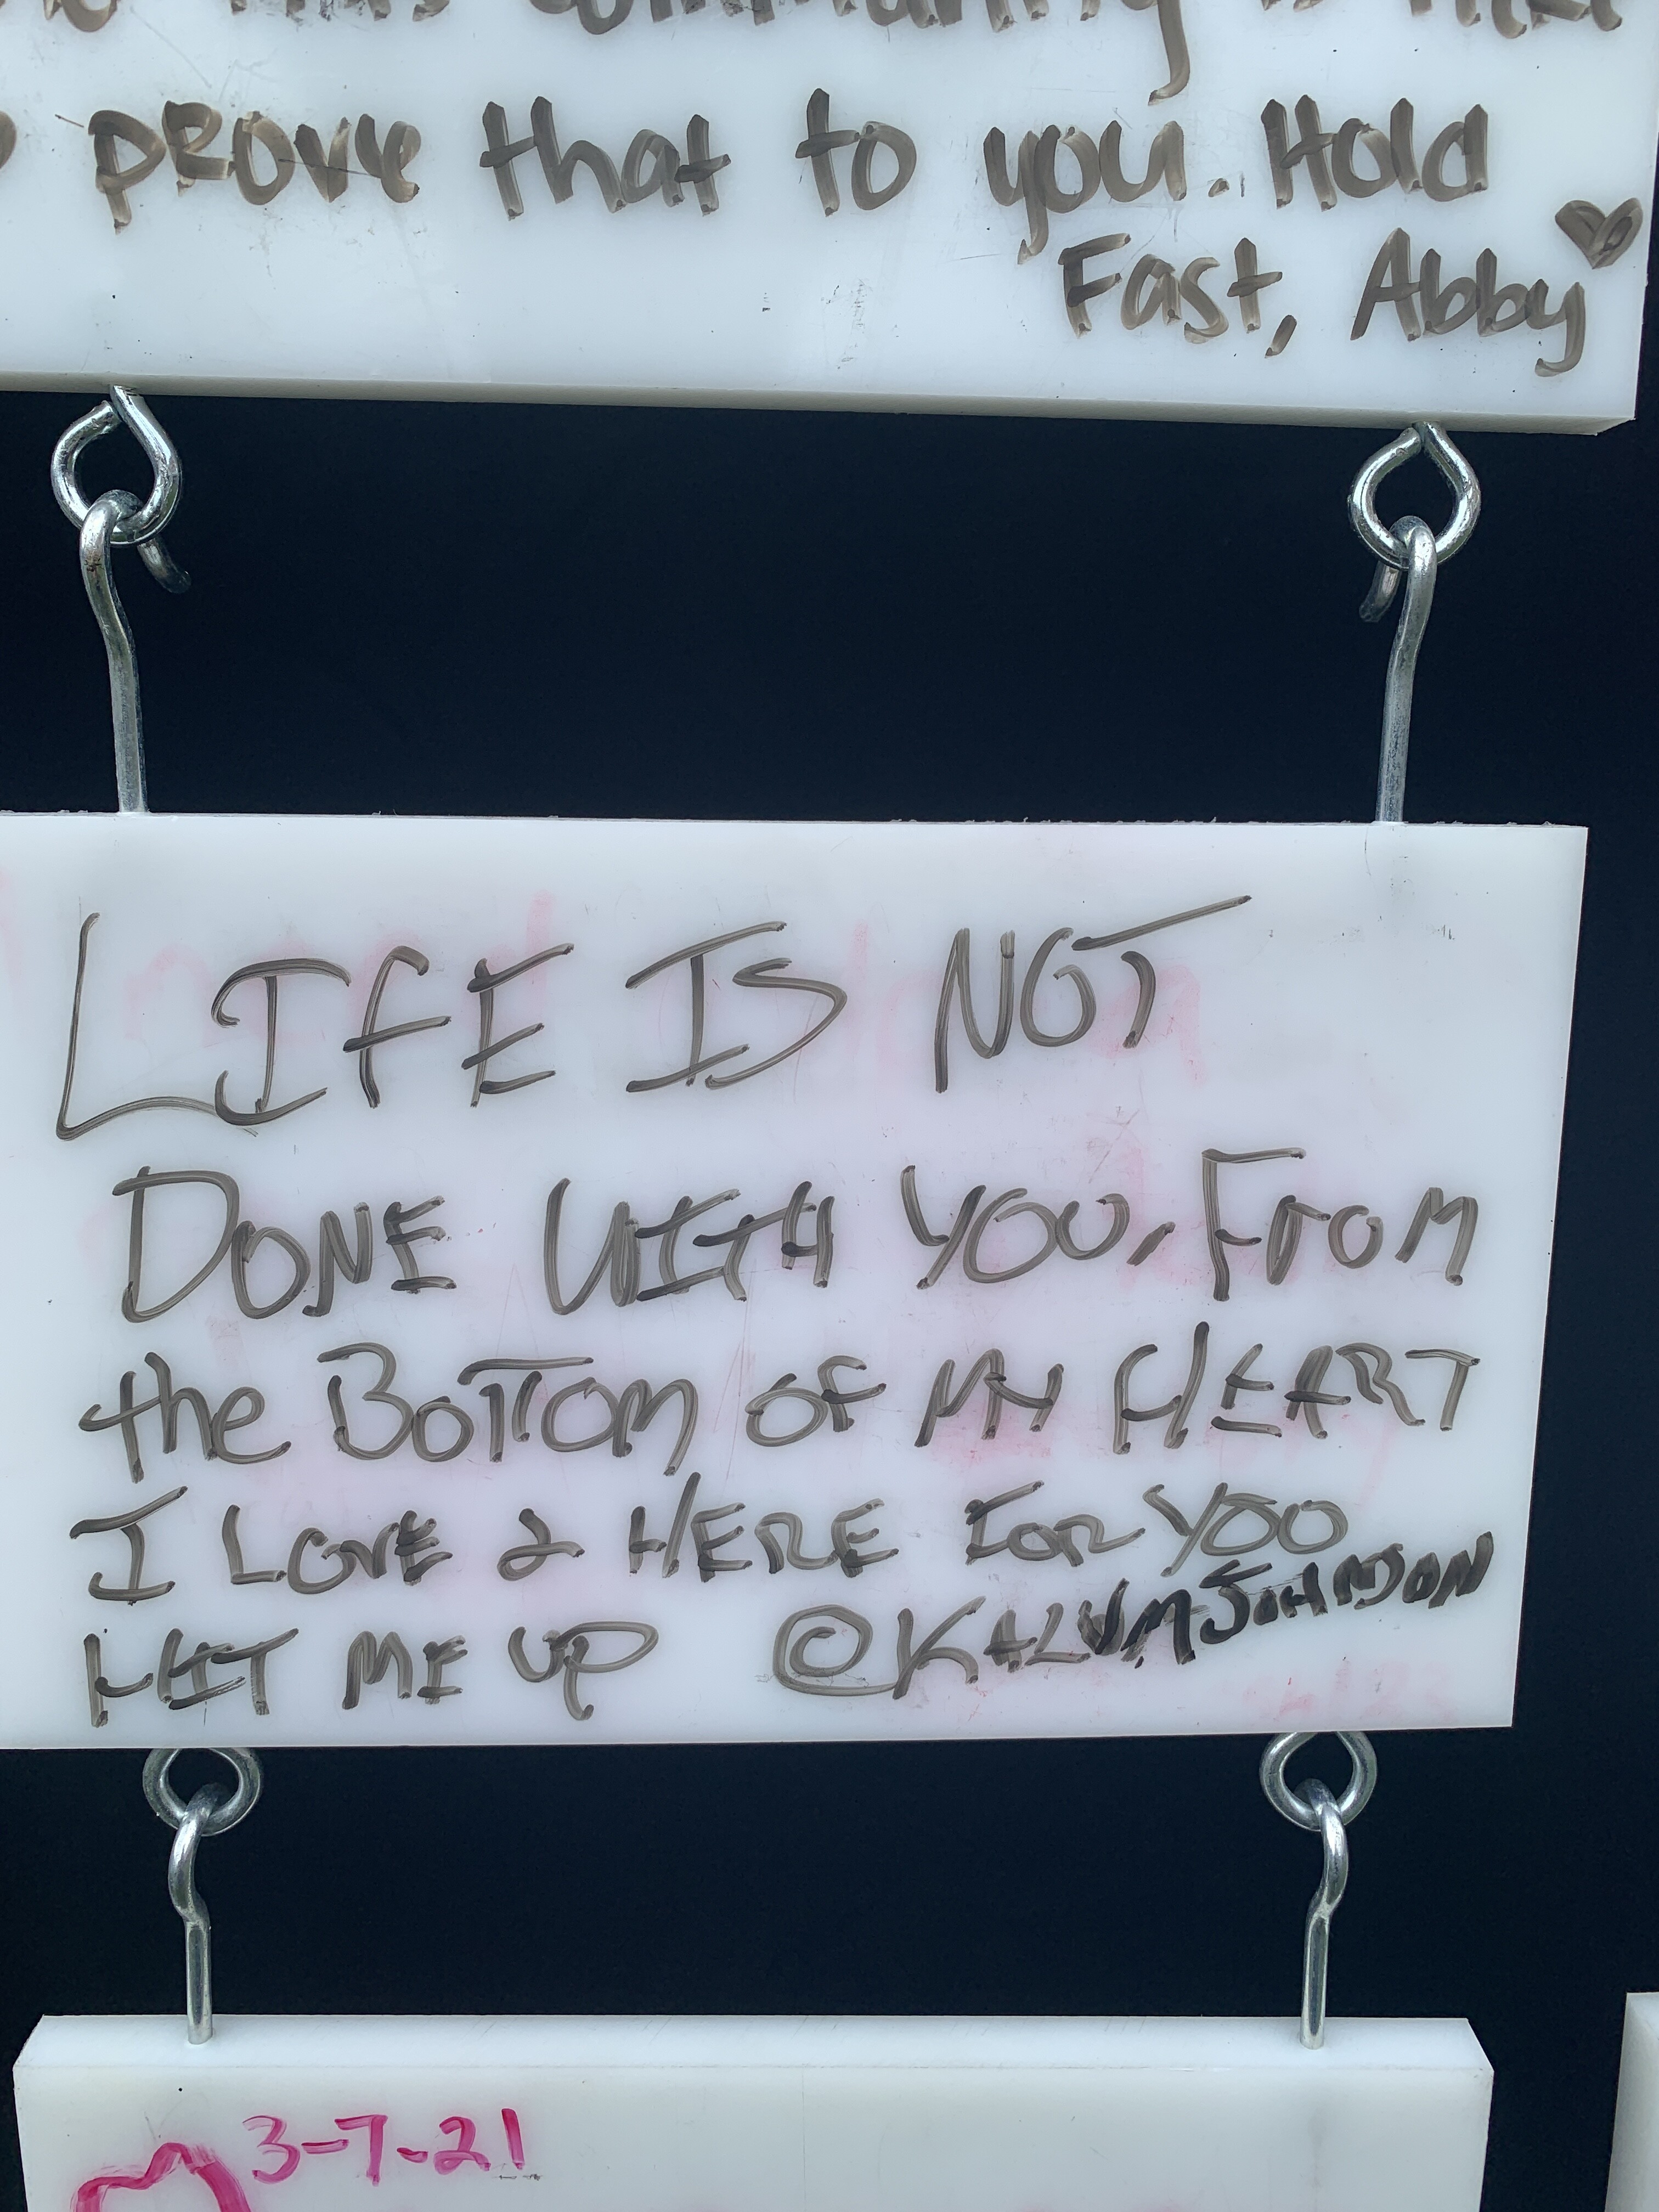 community is
prove that to you. Hold
Fast, Abby
LIFE IS NOT
DONE WITH YOU, FROM
the BOTTOM OF MY HEART
I LOVE & HERE FOR YOO
HIT ME UP @KALVMJOHNSON
3-7-21